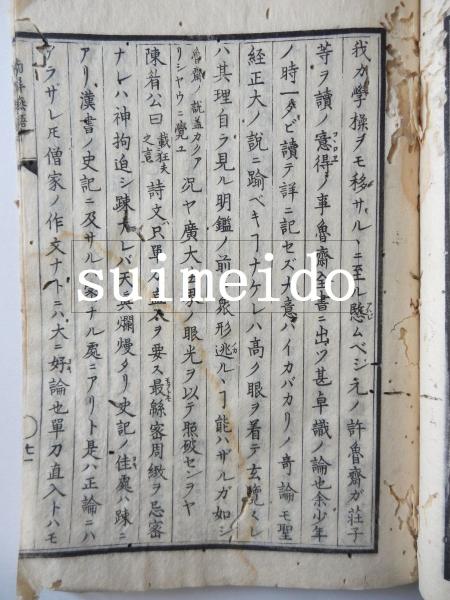 我カ学操ヲモ移サル丶ニ至ル愍ムベシ元ノ許魯齋ガ荘子
等ヲ讀ノ意得ノ事魯齋全書ニ出ツ甚卓識ノ論也余少年
ノ時一タビ讀テ詳ニ記セズ大意ハイカバカリノ奇論モ聖
經正大ノ説ニ踰ベキヿナケレハ高ク眼ヲ着テ玄覽スレ
ハ其理自ラ見ル明鑑ノ前ニ衆形逃ル丶ヿ能ハザルガ如シ
魯齋ノ説蓋カクア
リシヤウニ覺ユ
況ヤ廣大世界ノ眼光ヲ以テ照破センヲヤ
陳眉公曰
載狂夫
之言
詩文只單
ヲ要ス最絲密周緻ヲ忌密
ナレハ神拘迫シ踈ナレバ天真爛熳タリ史記ノ佳處ハ踈ニ
アリ漢書ノ史記ニ及サルハ密ナル處ニアリト是ハ正論ニハ
アラザレモ僧家ノ作文ナトニハ大ニ好論也單刀直入トハモ
七
suimeido